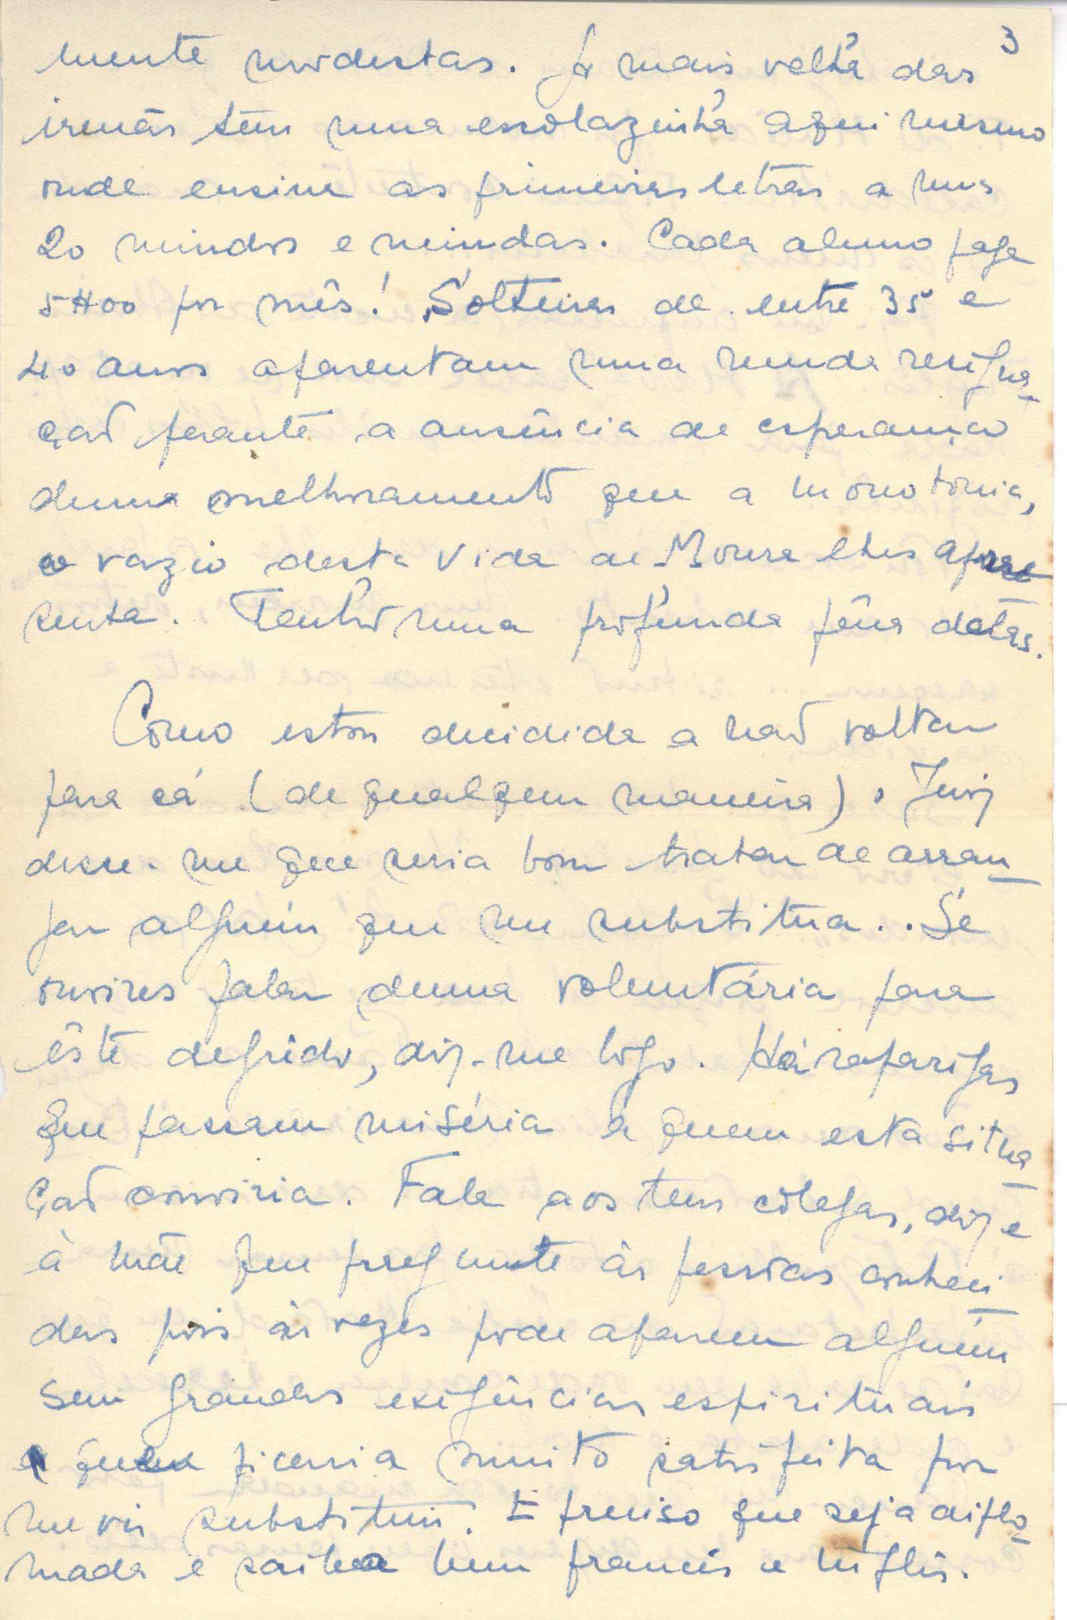 3
mente modestas. A mais velha das
irmãs tem uma escolazinha aqui mesmo
onde ensina as primeiras letras a uns
20 meninos e meninas. Cada aluno paga
5$00 por mês! Solteiras de entre 35 e
40 anos aparentam uma muda resigna-
ção perante a ausência de esperança
dum melhoramento que a monotonia,
o vazio desta vida de Moura lhes apre
senta. Tenho uma profunda pêna delas.
Como estou decidida a não voltar
para cá (de qualquer maneira), Jurj
disse-me que seria bom tratar de arran-
jar alguém que me substitua.. Se
ouvires falar duma voluntária para
êste degrêdo, diz-me logo. Há raparigas
que passam miséria a quem esta situa-
ção conviria. Fala aos teus colegas, diz e
à Mãe que pregunte às pessoas conheci-
das pois às vezes pode aparecer alguém
sem grandes exigências espirituais
e quem ficaria muito satisfeita por
me vir substituir. É preciso que seja diplo-
mada e saiba bem francês e inglês.